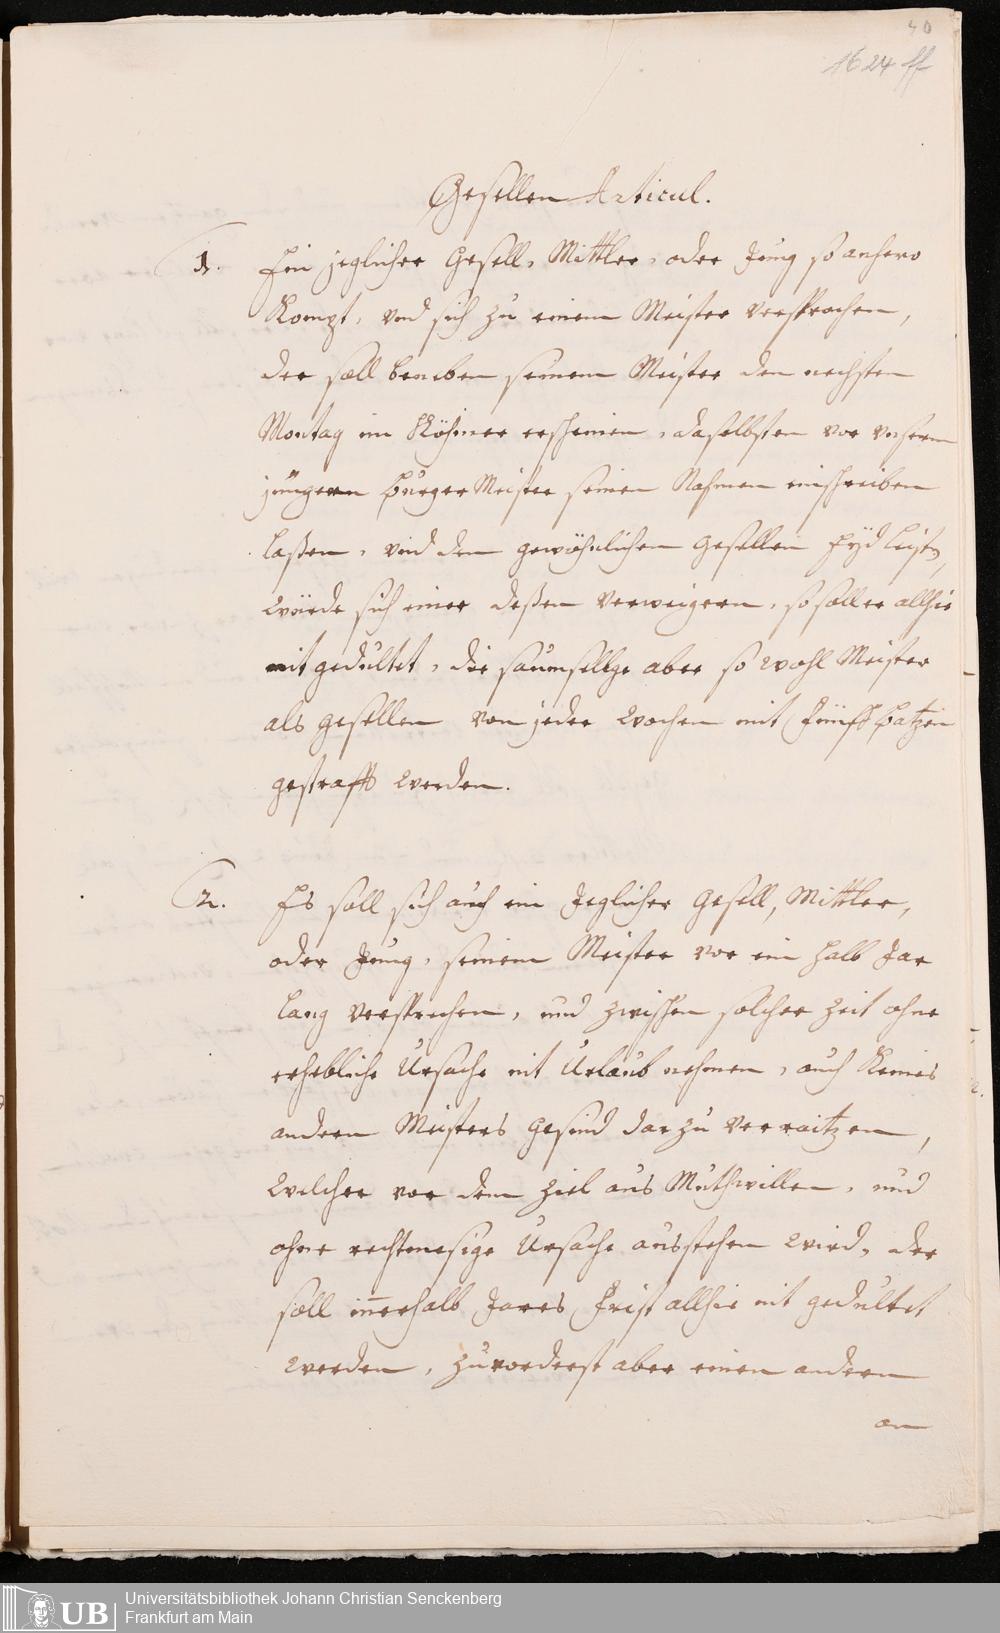 40
1624 ff
Gesellen Articul.
1. Ein jeglicher Gesell, Mittler, oder Jung so anhero
Kompt, vnd sich zu einem Meister versprochen,
der soll beneben seinem Meister den nechsten
Montag im Römer erscheinen, daselbsten vor vnserm
jüngern Burger Meister seinen Nahmen einschreiben
laßen, vnd den gewöhnlichen Gesellen Eyd leisten,
Würde sich einer deßen verweigern, so soll er allhie
nit gedultet, die saumsellge aber so wohl Meister
als Gesellen von jeder Wochen mit Fünff Batzen
gestrafft werden.
2. Es soll sich auch ein Jeglicher Gesell, Mittler,
oder Jung, seinem Meister vor ein halb Jar
lang versprechen, und zwischen solcher Zeit ohne
erhebliche Ursache nit Urlaub nehmen, auch Keines
andern Meisters Gesind darzu verraitzen,
Welcher vor dem Ziel aus Muthwillen, und
ohne rechtmesige Ursache ausstehen wird, der
soll inerhalb Jares Frist allhie nit gedultet
werden, zuvorderst aber einen andern
an
Universitätsbibliothek Johann Christian Senckenberg
Frankfurt am Main
UB